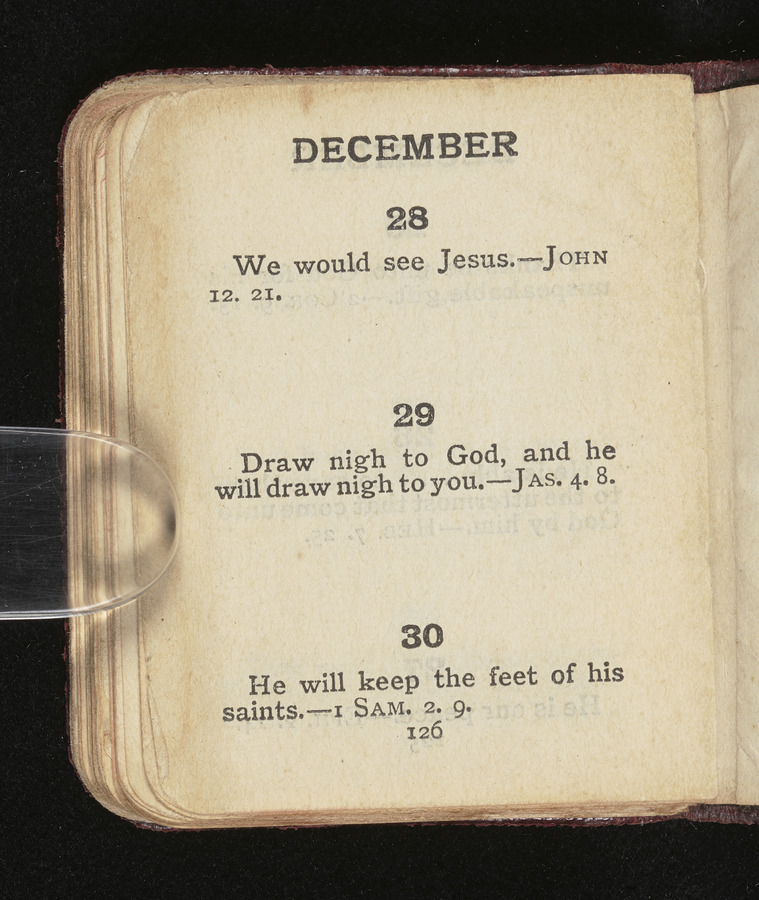 DECEMBER
28
We would see Jesus.—JOHN
12. 21.
29
Draw nigh to God, and he
will draw nigh to you.—JAS. 4. 8.
30
He will keep the feet of his
saints.—1 SAM. 2. 9.
126